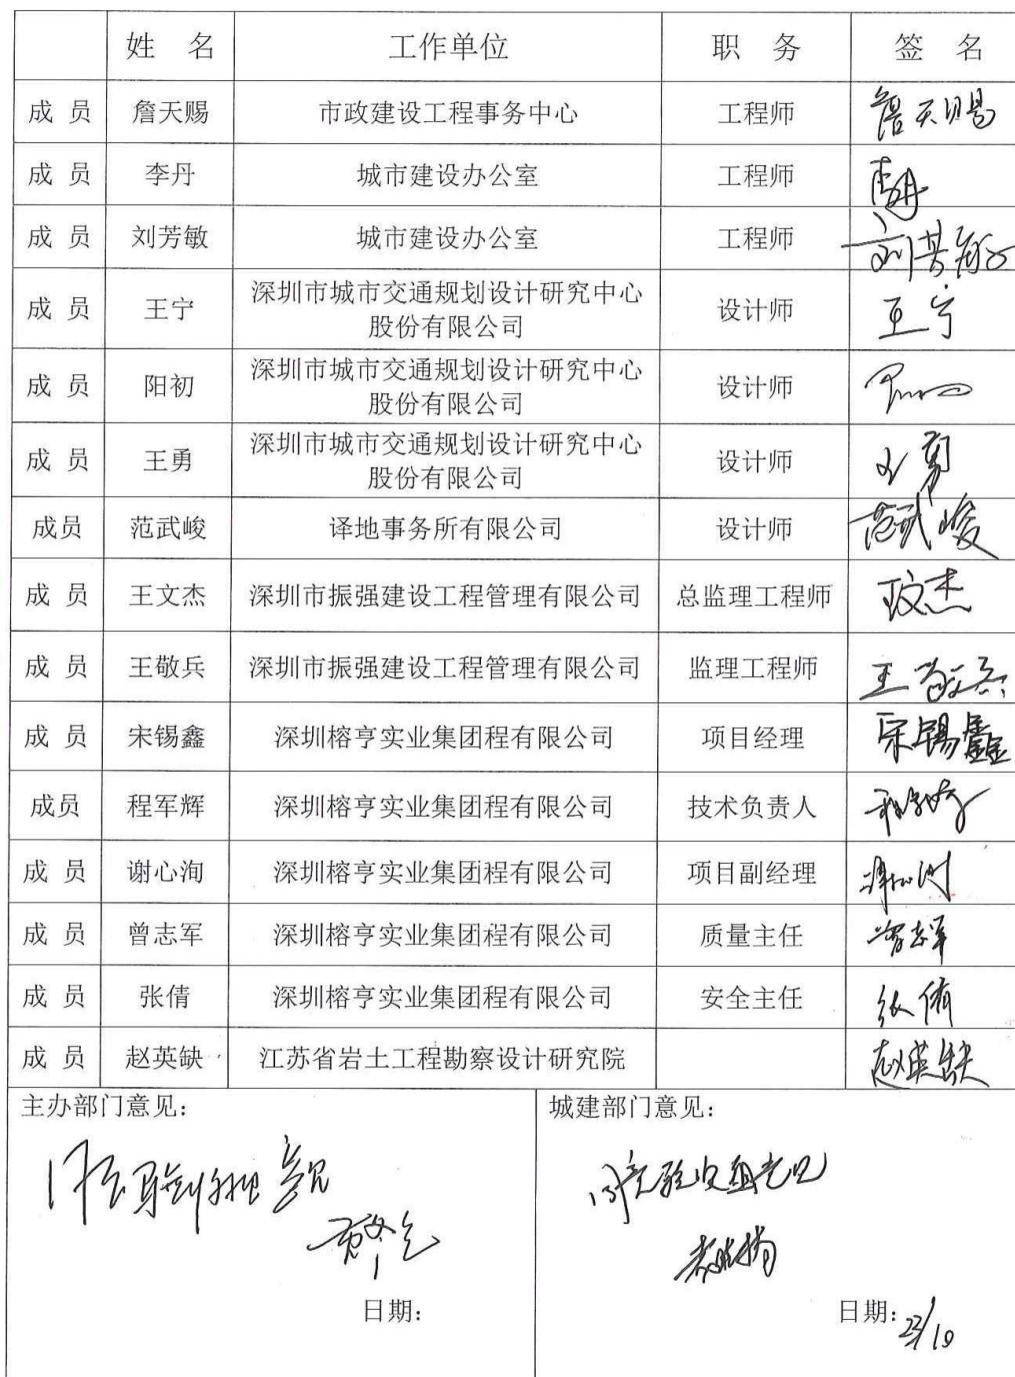 姓 名 工作单位 职 务 签 名
成 员 詹天赐 市政建设工程事务中心 工程师 詹天赐
成 员 李丹 城市建设办公室 工程师 李丹
成 员 刘芳敏 城市建设办公室 工程师 刘芳敏
成 员 王宁 深圳市城市交通规划设计研究中心 设计师 王宁
股份有限公司
成 员 阳初 深圳市城市交通规划设计研究中心 设计师
股份有限公司
成 员 王勇 深圳市城市交通规划设计研究中心 设计师 王勇
股份有限公司
成员 范武峻 译地事务所有限公司 设计师 范武峻
成 员 王文杰 深圳市振强建设工程管理有限公司 总监理工程师 王文杰
成 员 王敬兵 深圳市振强建设工程管理有限公司 监理工程师 王敬兵
成 员 宋锡鑫 深圳榕亨实业集团程有限公司 项目经理 宋锡鑫
成员 程军辉 深圳榕亨实业集团程有限公司 技术负责人 程军辉
成 员 谢心洵 深圳榕亨实业集团程有限公司 项目副经理 谢心洵
成 员 曾志军 深圳榕亨实业集团程有限公司 质量主任 曾志军
成 员 张倩 深圳榕亨实业集团程有限公司 安全主任 张倩
成 员 赵英缺 江苏省岩土工程勘察设计研究院 赵英缺
主办部门意见：
城建部门意见：
同意验收组意见
日期：
日期：23/10